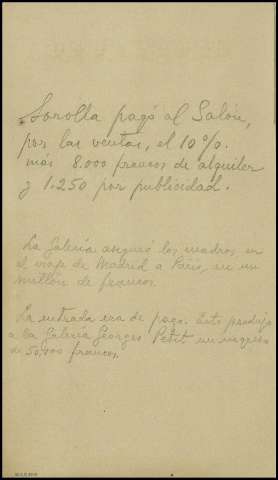 Sorolla pagó al Salón,
por las ventas, el 10%.
más 8.000 francos de alquiler
y 1.250 por publicidad.
La Galería aseguró los cuadros en
el viaje de Madrid a París, en un
millón de francos.
La entrada era de pago. Esto produjo
a la Galería Georges Petit un ingreso
de 50.000 francos.